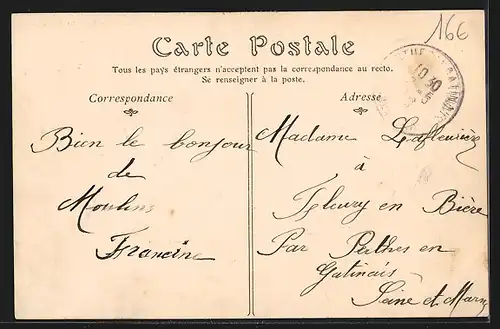 166
Carte Postale
Tous les pays étrangers n'acceptent pas la correspondance au recto.
Se renseigner à la poste.
Correspondance
Adresse
Bien le bonjour
de
Moulins
Francine
Madame Lafleurière
à
Fleury en Bière
Par Perthes en
Gatinais
Seine et Marne
10 30